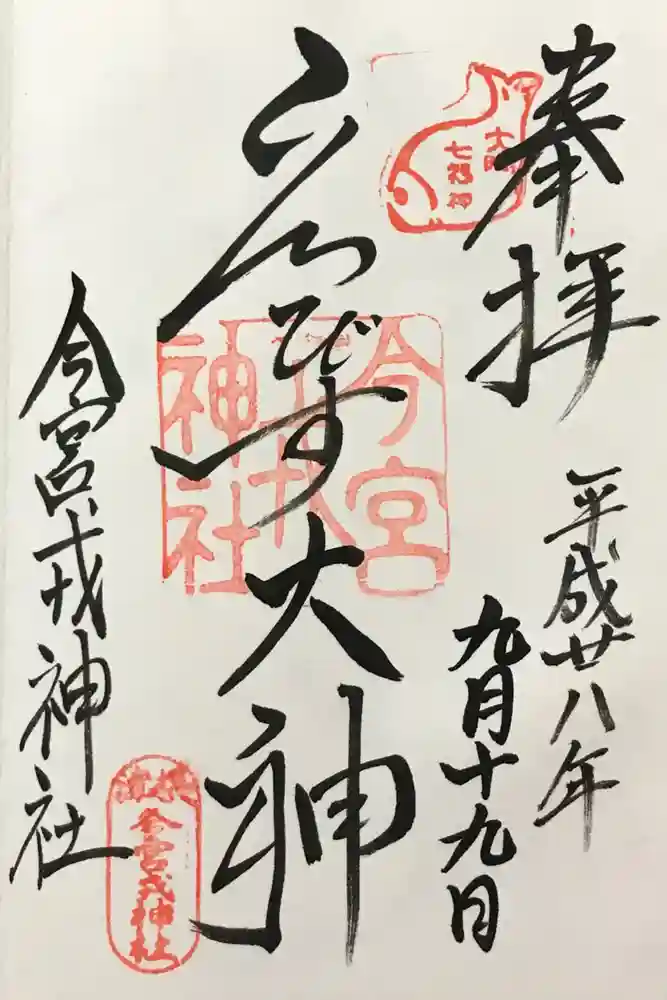 奉拝
七福神
平成廿八年
九月十九日
ゑびす大神
今宮
神社
今宮戎神社
今宮戎神社